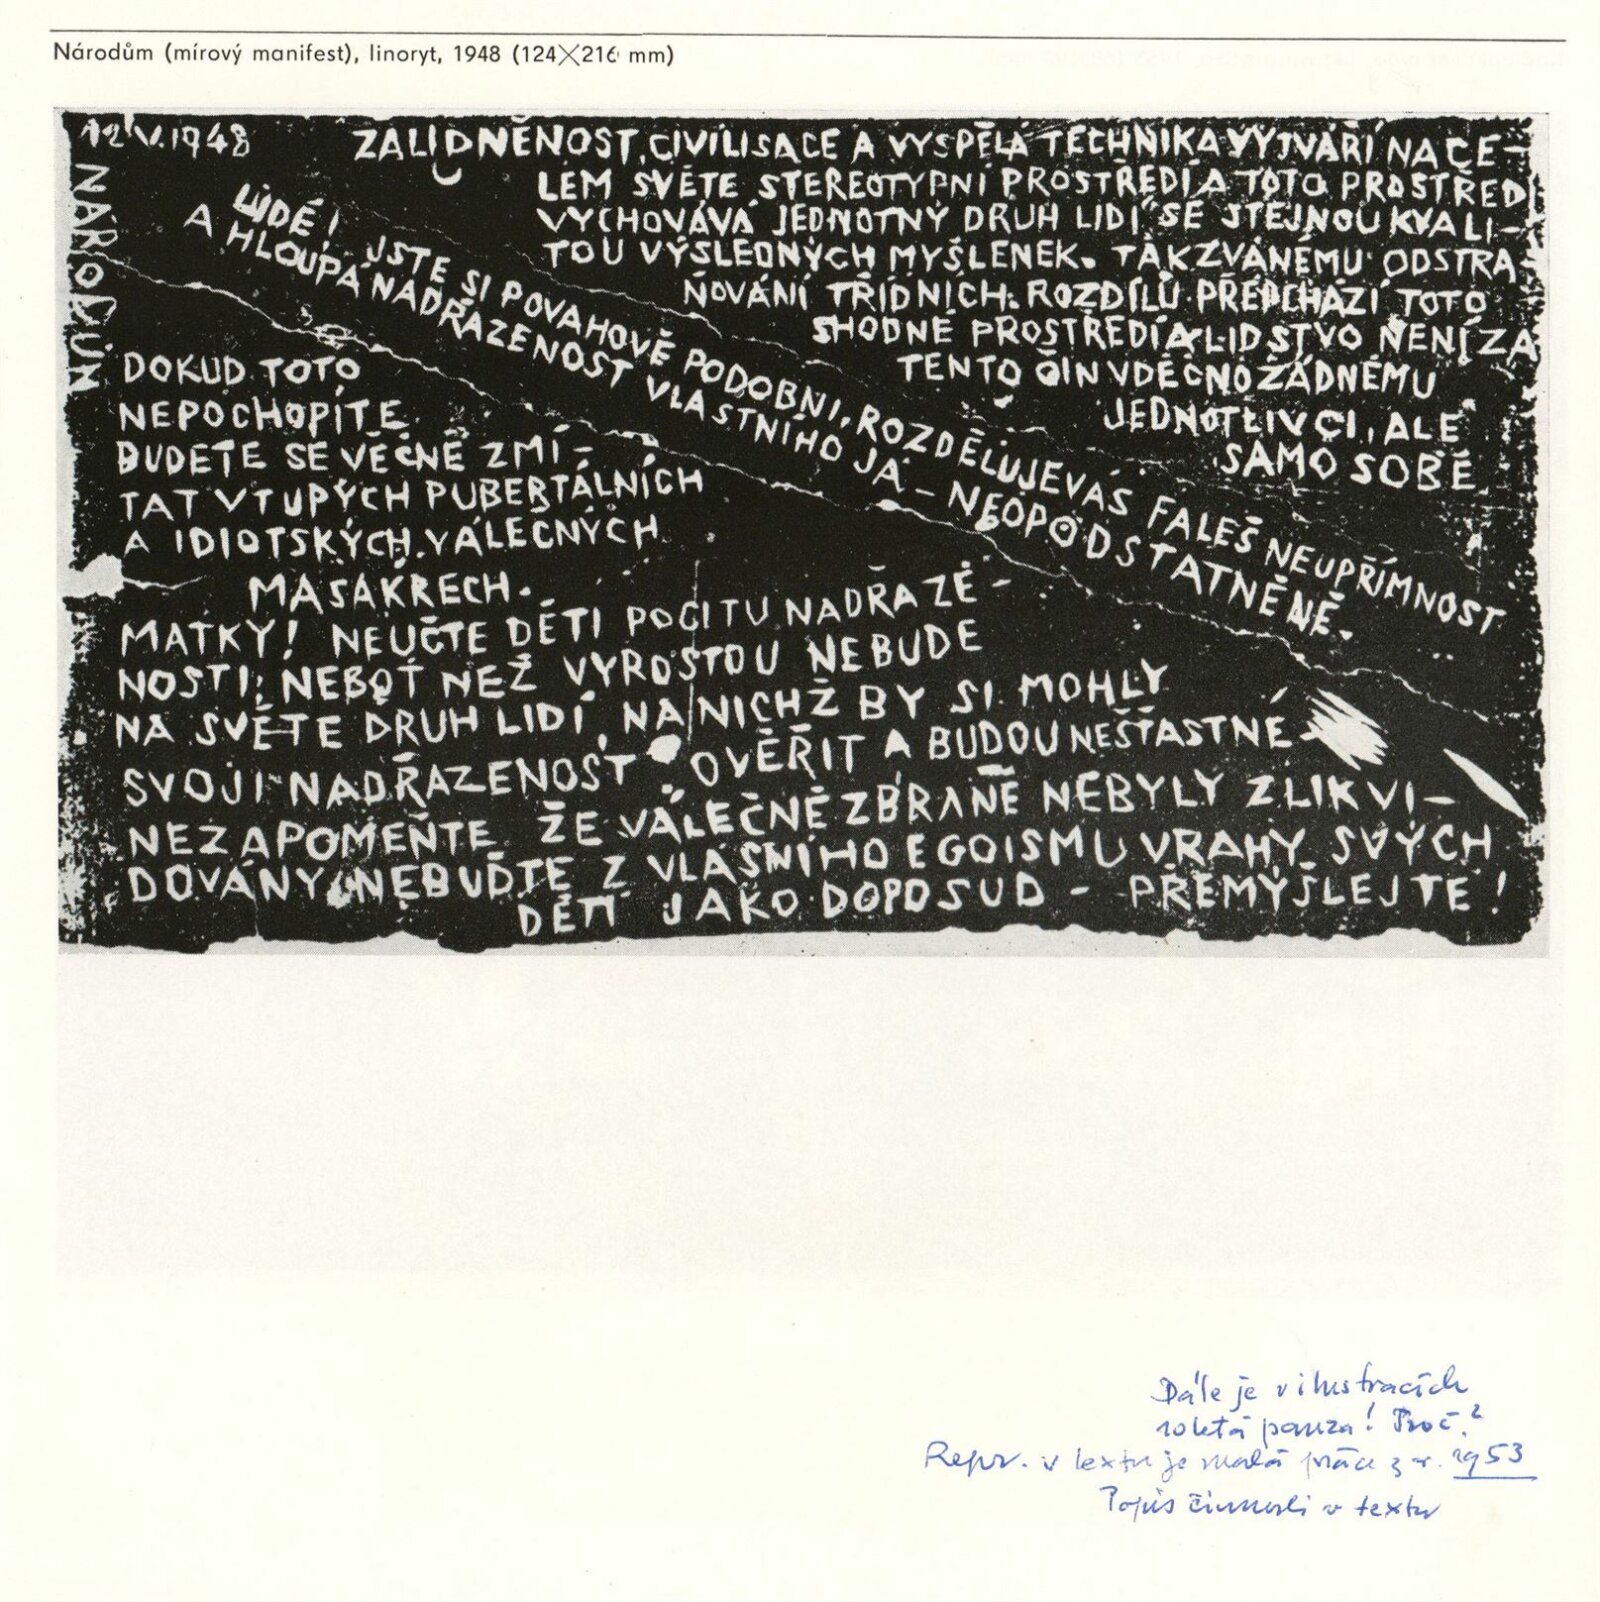 Národům (mírový manifest), linoryt, 1948 (124×216 mm)
12 V. 1948
NÁRODŮM
ZALIDNĚNOST, CIVILISACE A VYSPĚLÁ TECHNIKA VYTVÁŘÍ NA CE-
LÉM SVĚTE STEREOTYPNÍ PROSTŘEDÍ A TOTO PROSTŘEDÍ
VYCHOVÁVÁ JEDNOTNÝ DRUH LIDÍ SE STEJNOU KVALI-
TOU VÝSLEDNÝCH MYŠLENEK. TAKZVANÉMU ODSTRA
ŇOVÁNÍ TŘÍDNÍCH ROZDÍLŮ PŘEDCHÁZÍ TOTO
SHODNÉ PROSTŘEDÍ A LIDSTVO NENÍ ZA
TENTO ČIN VDĚČNO ŽÁDNÉMU
JEDNOTLIVCI, ALE
SAMO SOBĚ
LIDÉ! JSTE SI POVAHOVĚ PODOBNI, ROZDĚLUJE VÁS FALEŠ NEUPŘÍMNOST
A HLOUPÁ NADŘAZENOST VLASTNÍHO JÁ - NEOPODSTATNĚNĚ.
DOKUD TOTO
NEPOCHOPÍTE
BUDETE SE VĚČNĚ ZMÍ-
TAT V TUPÝCH PUBERTÁLNÍCH
A IDIOTSKÝCH VÁLEČNÝCH
MASAKRECH.
MATKY! NEUČTE DĚTI POCITU NADŘAZE-
NOSTI, NEBOŤ NEŽ VYROSTOU NEBUDE
NA SVĚTE DRUH LIDÍ, NA NICHŽ BY SI MOHLY
SVOJI NADŘAZENOST OVĚŘIT A BUDOU NEŠŤASTNÉ
NEZAPOMEŇTE ŽE VÁLEČNÉ ZBRANĚ NEBYLY ZLIKVI-
DOVÁNY, NEBUĎTE Z VLASNÍHO EGOISMU VRAHY SVÝCH
DĚTÍ JAKO DOPOSUD - PŘEMÝŠLEJTE!
Dále je v ilustracích
letá pauza! Proč?
Repr. v textu je malá práce z r. 1953
Popis činnosti v textu